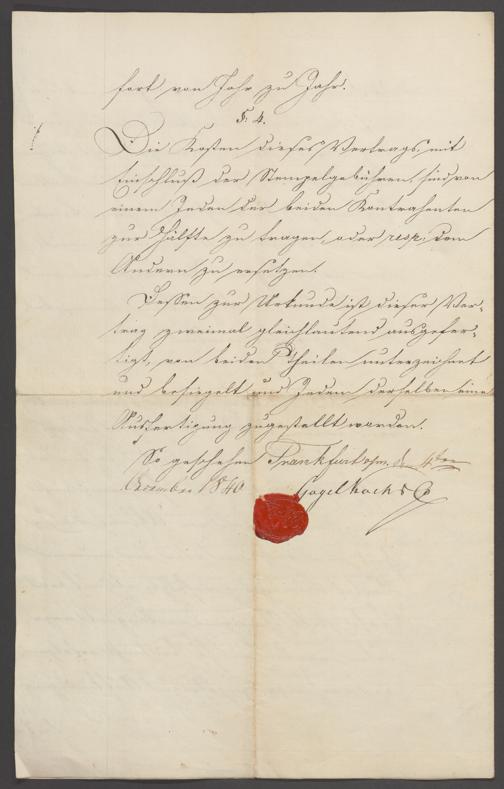 fort von Jahr zu Jahr.
§. 4.
Die Kosten dieses Vertrags, mit
Einschluß der Stempelgebühren, sind von
einem Jeden der beiden Kontrahenten
zur Hälfte zu tragen, oder resp. dem
Andern zu ersetzen.
Dessen zur Urkunde ist dieser Ver-
trag zweimal gleichlautend ausgefer-
tigt, von beiden Theilen unterzeichnet
und besiegelt und Jedem derselben eine
Ausfertigung zugestellt worden.
So geschehen Frankfurt a/m. den 4ten
1840
Gogel Koch & Co